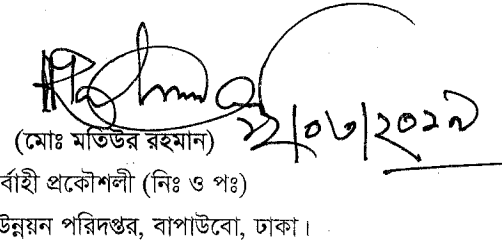 (মোঃ মতিউর রহমান)
র্বাহী প্রকৌশলী (নিঃ ও পঃ)
উন্নয়ন পরিদপ্তর, বাপাউবো, ঢাকা।